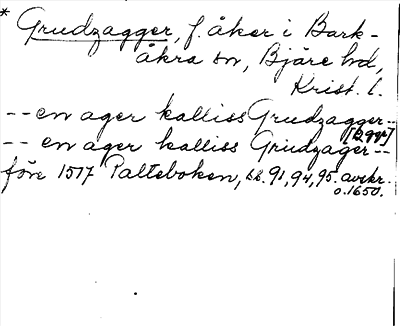 * Grudzagger, f. åker i Bark-
åkra sn, Bjäre hd,
Krist. l.
-- en ager kalliss Grudzagger --
-- en ager kalliss Gridzager --
före 1517 Palteboken, bl. 91, 94, 95. avskr.
o. 1650.